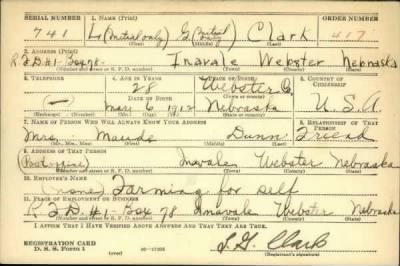 SERIAL NUMBER 1. NAME (Print) ORDER NUMBER
741 L. (Initial only) G. (Initial only) Clark 417
(First) (Middle) (Last)
2. ADDRESS (Print)
R F D #1-Box 78- Inavale Webster Nebraska
(Number and street or R. F. D. number) (Town) (County) (State)
3. TELEPHONE 4. AGE IN YEARS 5. PLACE OF BIRTH 6. COUNTRY OF CITIZENSHIP
28 Webster Co.
DATE OF BIRTH (Town or county)
(—) Mar. 6, 1912 Nebraska U. S. A.
(Exchange) (Number) (Mo.) (Day) (Yr.) (State or country)
7. NAME OF PERSON WHO WILL ALWAYS KNOW YOUR ADDRESS 8. RELATIONSHIP OF THAT PERSON
Mrs. Maude Dunn Friend
(Mr., Mrs., Miss) (First) (Middle) (Last)
9. ADDRESS OF THAT PERSON
(Post office) Inavale Webster Nebraska
(Number and street or R. F. D. number) (Town) (County) (State)
10. EMPLOYER'S NAME
(none) Farming for self
11. PLACE OF EMPLOYMENT OR BUSINESS
R F D. #1-Box 78 Inavale Webster Nebraska
(Number and street or R. F. D. number) (Town) (County) (State)
I AFFIRM THAT I HAVE VERIFIED ABOVE ANSWERS AND THAT THEY ARE TRUE.
REGISTRATION CARD
D. S. S. Form 1 L. G. Clark
(Registrant's signature)